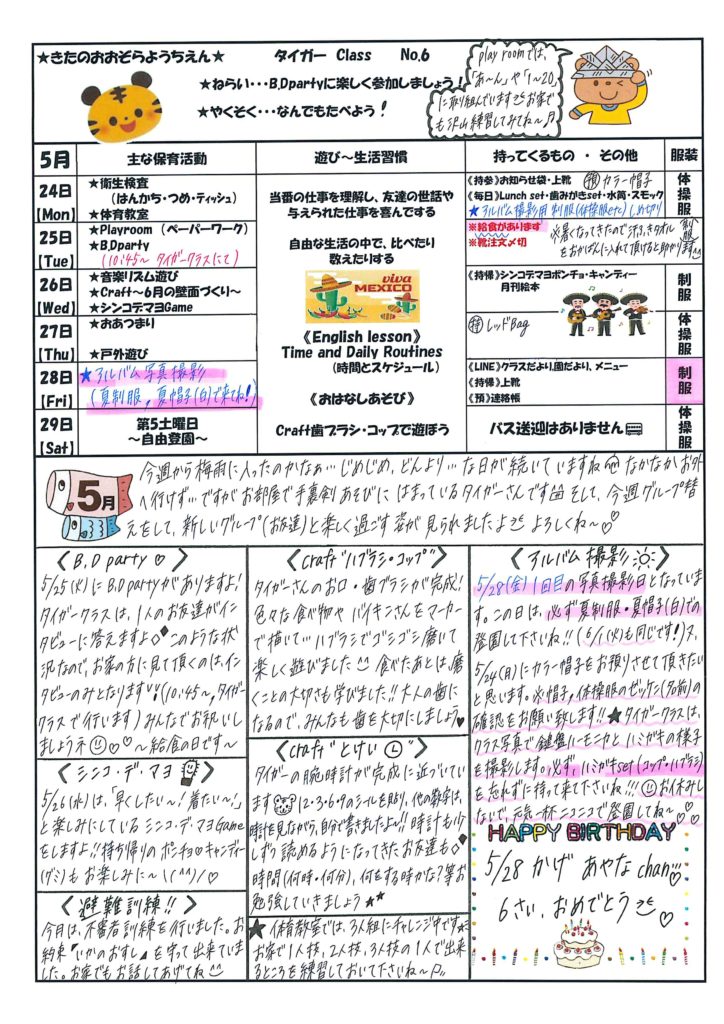 ★きたのおおぞらようちえん★　タイガー Class　No.6
★ねらい・・・B.Dpartyに楽しく参加しましょう！
★やくそく・・・なんでもたべよう！
play roomでは、
「あ〜ん」や「1〜20」
に取り組んでいます お家で
も沢山練習してみてね〜♬
5月　主な保育活動　遊び〜生活習慣　持ってくるもの・その他　服装
24日
【Mon】
★衛生検査
（はんかち・つめ・ティッシュ）
★体育教室
《持参》お知らせ袋・上靴 預 カラー帽子
《毎日》Lunch set・歯みがきset・水筒・スモック
★アルバム撮影用 制服(体操服etc) しめ切り
体操服
25日
【Tue】
★Playroom （ペーパーワーク）
★B.Dparty
(10:45〜 タイガークラスにて)
※給食があります
※靴注文〆切
※暑くなってきたので汗ふきタオル
をおかばんに入れて頂けると助かります
制服
26日
【Wed】
★音楽リズム遊び
★Craft〜6月の壁面づくり〜
★シンコデマヨGame
《持帰》シンコデマヨポンチョ・キャンディー
月刊絵本
制服
27日
【Thu】
★おあつまり
★戸外遊び
持 レッドBag
体操服
28日
【Fri】
★アルバム写真撮影
(夏制服,夏帽子(白)で来てね!)
《LINE》クラスだより、園だより、メニュー
《持帰》上靴
《預》連絡帳
制服
29日
【Sat】
第5土曜日
〜自由登園〜
バス送迎はありません
体操服
当番の仕事を理解し、友達の世話や
与えられた仕事を喜んでする
自由な生活の中で、比べたり
数えたりする
viva
MEXICO
《English lesson》
Time and Daily Routines
（時間とスケジュール）
《おはなしあそび》
Craft歯ブラシ・コップで遊ぼう
5月
今週から梅雨に入ったのかなぁ…じめじめ、どんより…な日が続いていますね なかなかお外
へ行けず…ですがお部屋で手裏剣あそびにはまっているタイガーさんです そして、今週グループ替
えをして、新しいグループ(お友達)と楽しく過ごす姿が見られましたよ よろしくね〜♡
〈B,D party ♡〉
5/25(火)にB,D partyがありますよ!
タイガークラスは、1人のお友達がイン
タビューに答えますよ◆このような状
況なので、お家の方に見て頂くのは、イン
タビューのみとなります(10:45〜,タイガー
クラスで行います)みんなでお祝いしま
しょうネ♡♡〜給食の日です〜
〈シンコ・デ・マヨ〉
5/26(水)は、「早くしたい〜!着たい〜!」
と楽しみにしているシンコ・デ・マヨGame
をしますよ!!持ち帰りのポンチョ♡キャンディー
(グミ)もお楽しみに〜\(^^)/♡
〈避難訓練!!〉
今月は、不審者訓練を行いました。お
約束『いかのおすし』を守って出来ていま
した。お家でもお話してあげてね
〈craft “ハブラシ・コップ”〉
タイガーさんのお口・歯ブラシが完成!
色々な食べ物やバイキンさんをマーカー
で描いて…ハブラシでゴシゴシ磨いて
楽しく遊びました 食べたあとは、磨
くことの大切さも学びました!!大人の歯に
なるので、みんなも歯を大切にしましょう♥
〈craft “とけい”〉
タイガーの腕時計が完成に近づいてい
ます 12・3・6・9のシールを貼り、他の数字は、
時計を見ながら、自分で書きましたよ!!時計も少
しずつ読めるようになってきたお友達も◆
時間(何時・何分)、何をする時かな?等お
勉強していきましょう★★
★体育教室では、3人組にチャレンジ中です★
お家で1人技、2人技、3人技の1人で出来
るところを練習しておいて下さいね〜
〈アルバム撮影〉
5/28(金)1回目の写真撮影日となっていま
す。この日は、必ず夏制服・夏帽子(白)での
登園して下さいね!!(6/1(火)も同じです!)又、
5/24(月)にカラー帽子をお預りさせて頂きたい
と思います。※帽子,体操服のゼッケン(名前)の
確認をお願い致します!!★タイガークラスは、
クラス写真で鍵盤ハーモニカとハミガキの様子
を撮影します。必ず、ハミガキset(コップ・ハブラシ)
を忘れずに持って来て下さいね!!!お休みし
ないで、元気一杯ニコニコで登園してね〜♡♡
HAPPY BIRTHDAY
5/28 かげ あやな chan
6さい、おめでとう♡